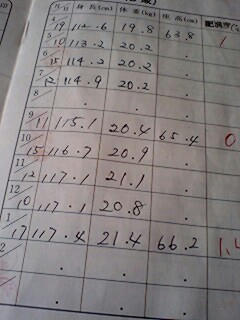 月/日 身長(cm) 体重(kg) 座高(cm)
4/19 112.6 19.8 63.8 1
5/10 113.2 20.2 .
6/15 114.2 20.2 .
7/12 114.9 20.2 .
8 . . .
9/11 115.1 20.4 65.4 0
10/15 116.7 20.9 .
11/12 117.1 21.1 .
12/10 117.1 20.8 .
1/17 117.4 21.4 66.2 1.4
2 . . .
. . .